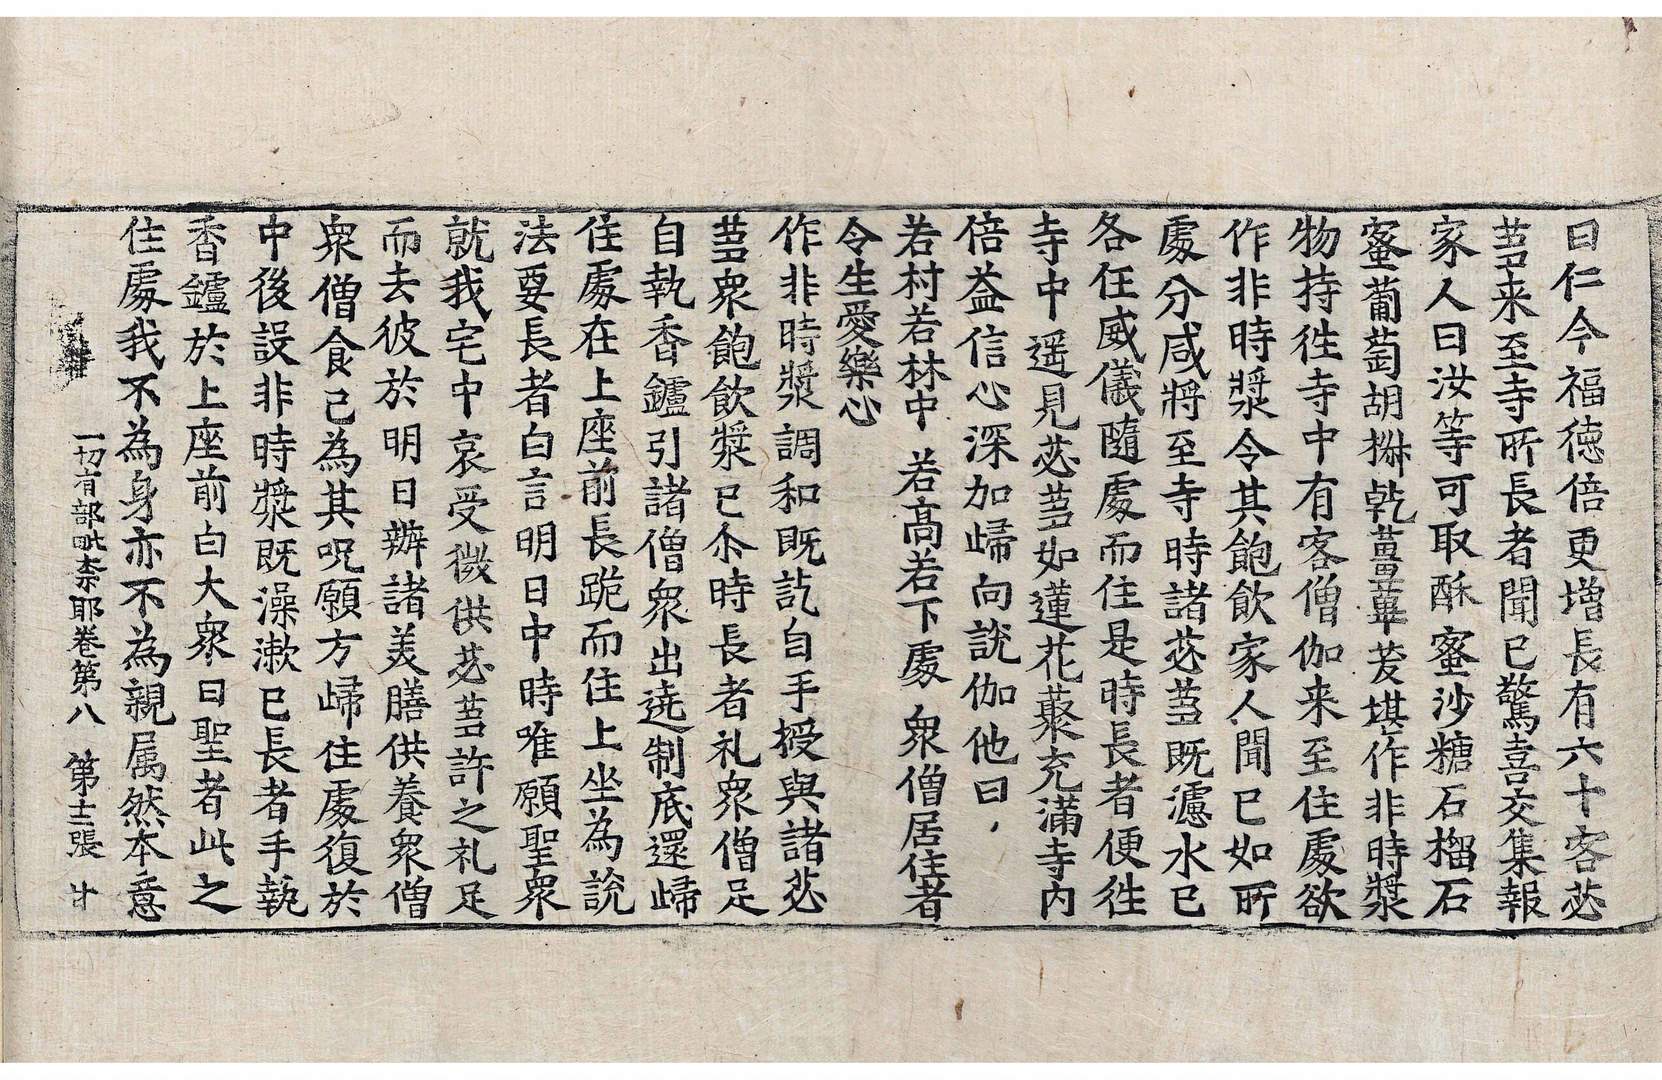 曰仁今福德倍更增長有六十客苾
蒭来至寺所長者聞已驚喜交集報
家人曰汝等可取酥蜜沙糖石榴石
蜜蒲萄胡椒乾薑蓽茇堪作非時漿
物持徃寺中有客僧伽来至住處欲
作非時漿令其飽飲家人聞已如所
處分咸將至寺時諸苾蒭既濾水已
各任威儀隨處而住是時長者便徃
寺中遥見苾蒭如蓮花藂充滿寺内
倍益信心深加歸向說伽他曰
若村若林中　若高若下處　衆僧居住者
令生愛樂心
作非時漿調和既訖自手授與諸苾
蒭衆飽飲漿已尒時長者礼衆僧足
自執香鑪引諸僧衆出遶制底還歸
住處在上座前長跪而住上坐為說
法要長者白言明日中時唯願聖衆
就我宅中哀受微供苾蒭許之礼足
而去彼於明日辦諸美膳供養衆僧
衆僧食已為其呪願方歸住處復於
中後設非時漿既澡漱已長者手執
香鑪於上座前白大衆曰聖者此之
住處我不為身亦不為親属然本意
一切有部毗柰耶卷第八　第十二張　廿